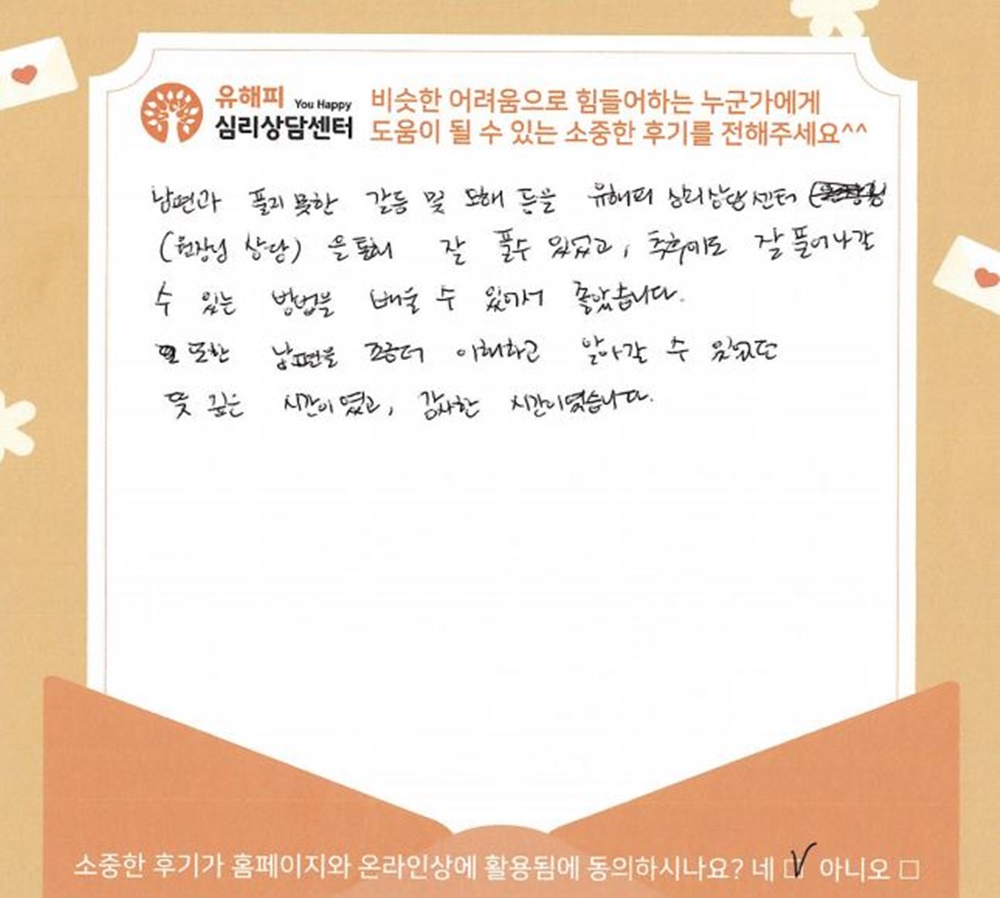 유해피 You Happy
심리상담센터
비슷한 어려움으로 힘들어하는 누군가에게
도움이 될 수 있는 소중한 후기를 전해주세요^^
남편과 풀리 못한 갈등 및 오해 등을 유해피 심리상담센터
(원장님 상담) 을 통해 잘 풀수 있었고, 추후에도 잘 풀어나갈
수 있는 방법을 배울 수 있어서 좋았습니다.
또한 남편을 조금더 이해하고 알아갈 수 있었던
뜻 깊은 시간이였고, 감사한 시간이였습니다.
소중한 후기가 홈페이지와 온라인상에 활용됨에 동의하시나요? 네 ☑ 아니오 □